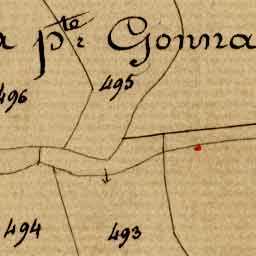 a pte Gonna
496
495
494
493